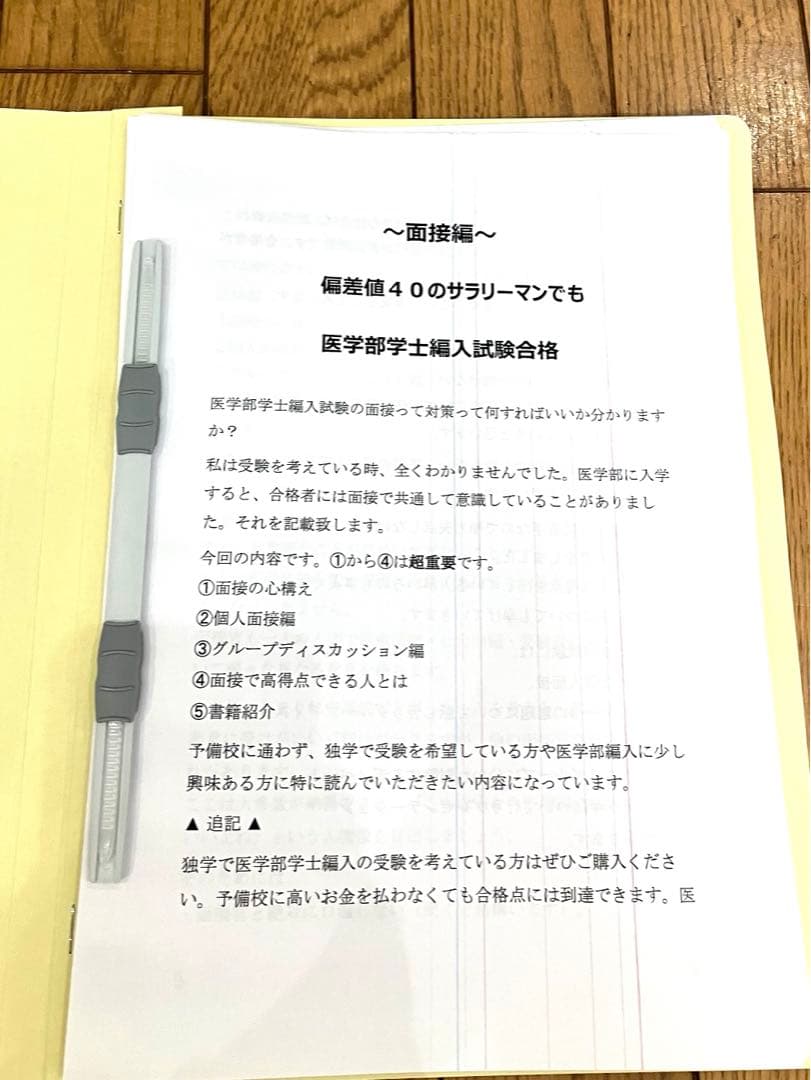 ～面接編～
偏差値４０のサラリーマンでも
医学部学士編入試験合格
医学部学士編入試験の面接って対策って何すればいいか分かります
か？
私は受験を考えている時、全くわかりませんでした。医学部に入学
すると、合格者には面接で共通して意識していることがありまし
た。それを記載致します。
今回の内容です。①から④は超重要です。
①面接の心構え
②個人面接編
③グループディスカッション編
④面接で高得点できる人とは
⑤書籍紹介
予備校に通わず、独学で受験を希望している方や医学部編入に少し
興味ある方に特に読んでいただきたい内容になっています。
▲ 追記 ▲
独学で医学部学士編入の受験を考えている方はぜひご購入くださ
い。予備校に高いお金を払わなくても合格点には到達できます。医